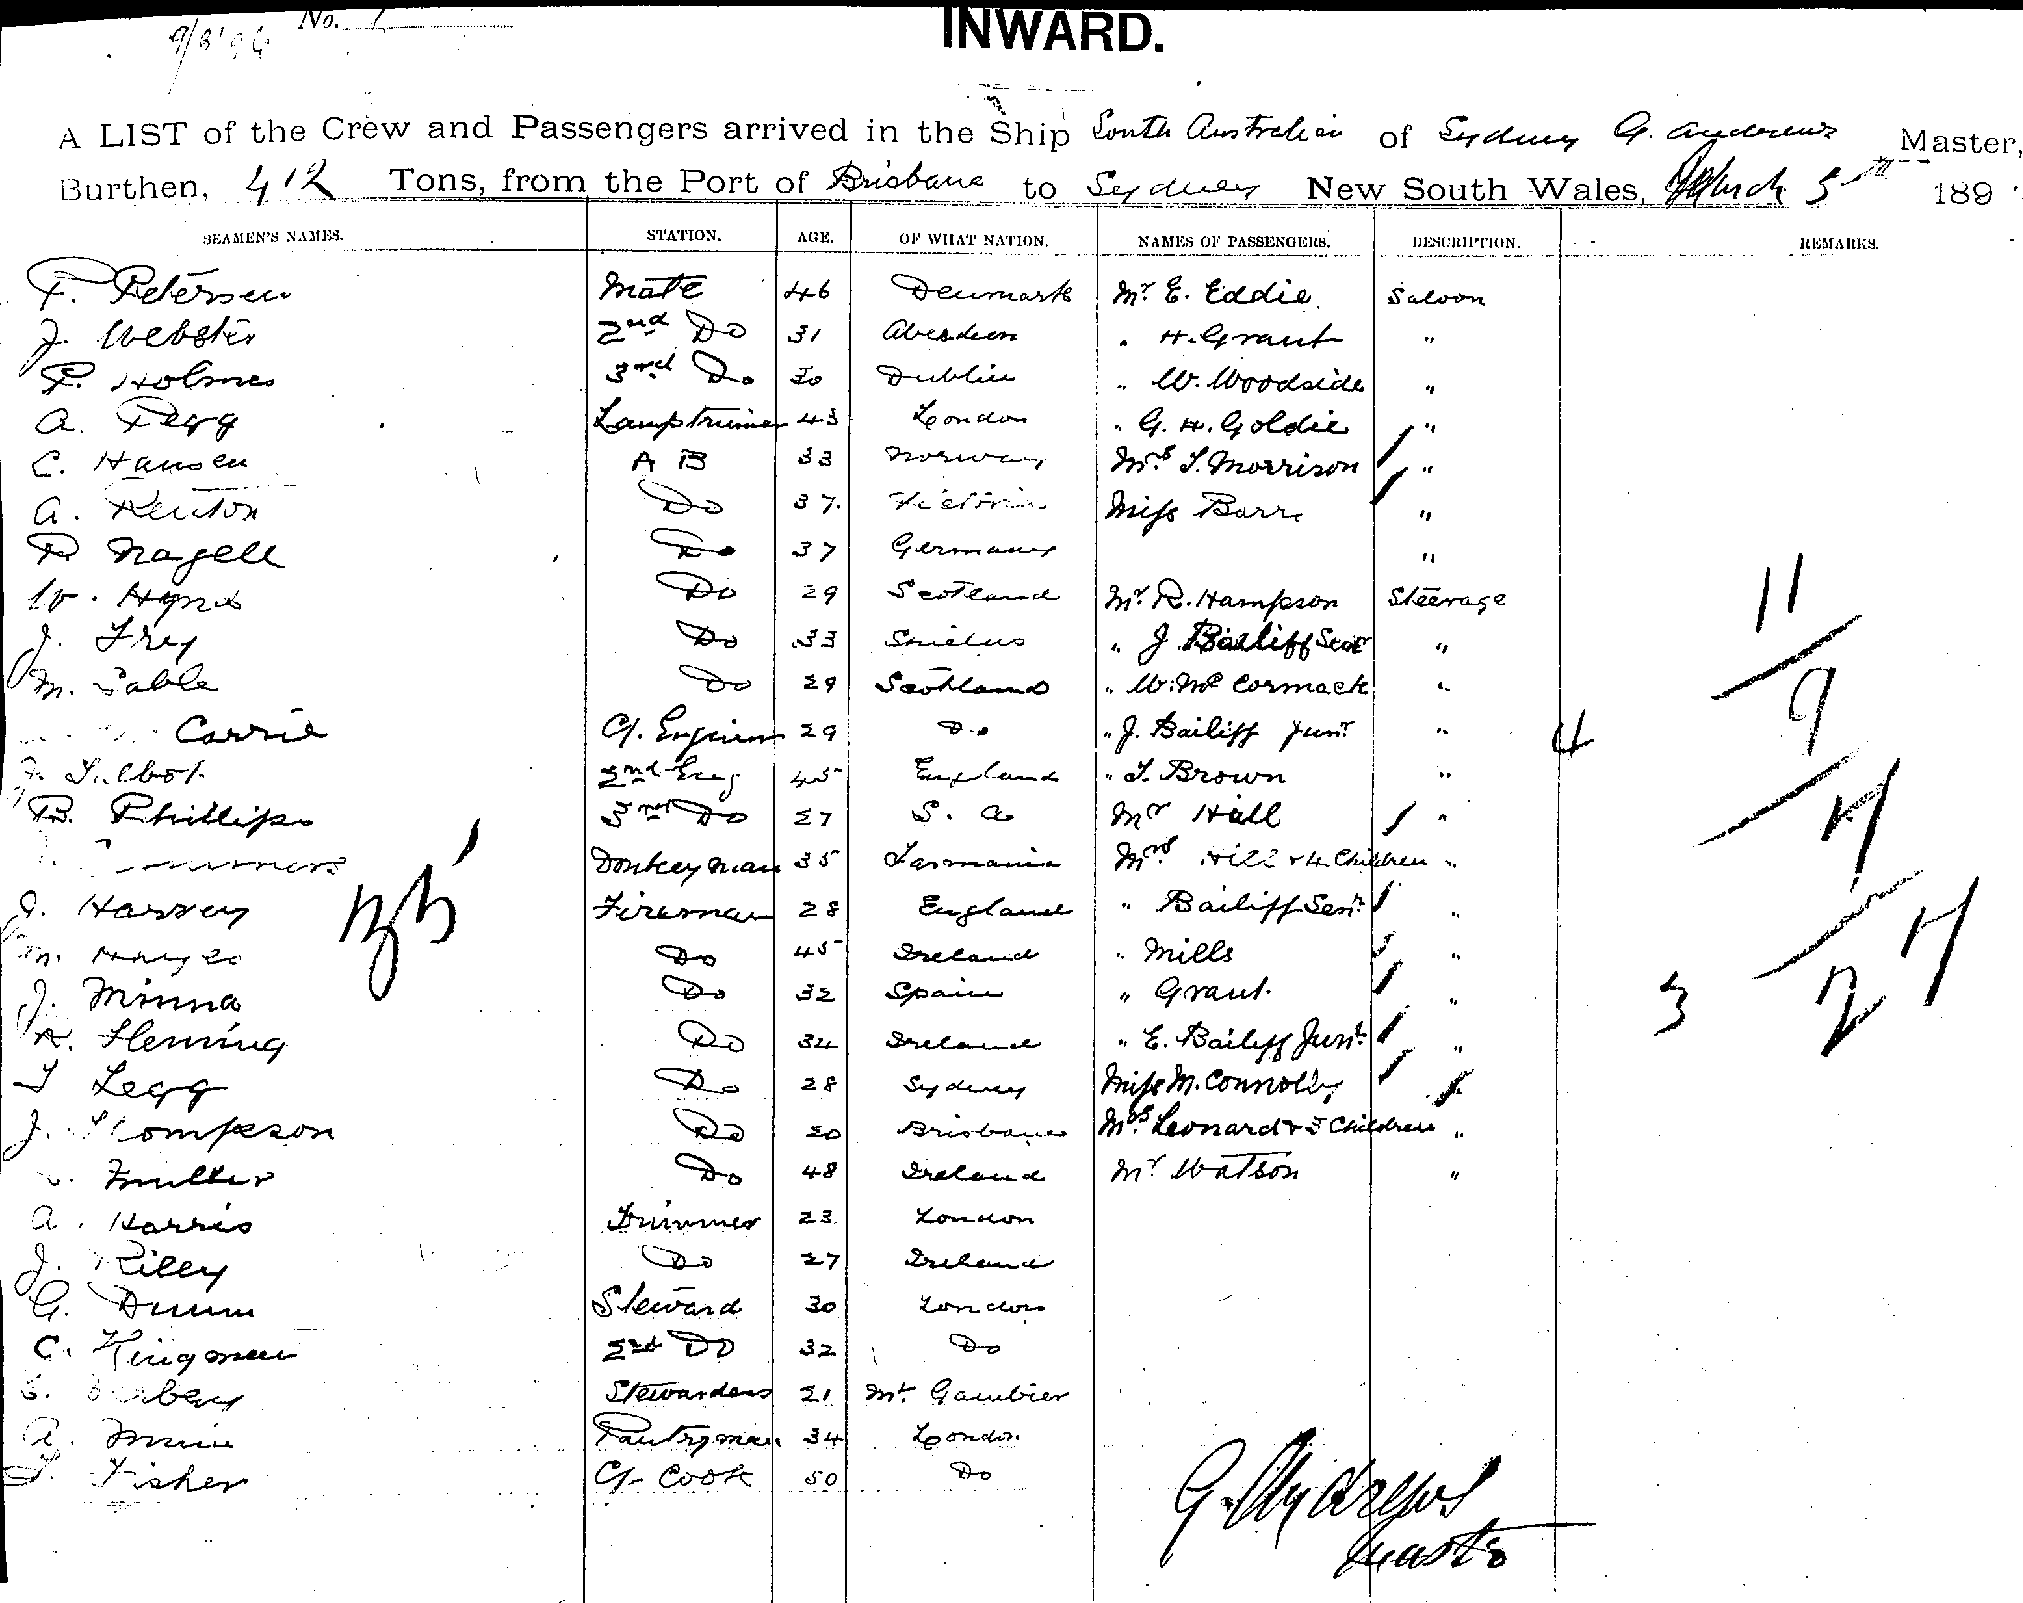 9/3/96 No. 1
INWARD.
A LIST of the Crew and Passengers arrived in the Ship South Australian of Sydney G. Andrews Master,
Burthen, 412 Tons, from the Port of Brisbane to Sydney New South Wales, March 5th 189
SEAMEN'S NAMES. STATION. AGE. OF WHAT NATION. NAMES OF PASSENGERS. DESCRIPTION. REMARKS.
P. Petersen Mate 46 Denmark Mr. E. Eddie Saloon
J. Webster 2nd Do 31 Aberdeen " H. Grant "
P. Holmes 3rd Do 30 Dublin " W. Woodside "
A. Pegg Lamptrimmer 43 London " G. H. Goldie "
C. Hansen A B 33 Norway Mrs. T. Morrison "
A. Renton Do 37 Victoria Miss Barr "
P Nagell Do 37 Germany "
W. Hynd Do 29 Scotland Mr. R. Hampson Steerage
J. Frey Do 33 Shields " J. Bailiff Senr "
M. Sable Do 29 Scotland " W. McCormack "
Carrie Cf. Engineer 29 Do " J. Bailiff Junr "
Talbot 2nd Eng 45 England " T. Brown "
B. Phillips 3rd Do 27 S. A Mr Hall "
Donkeyman 35 Tasmania Mrs Hill & 4 Children "
J. Harvey Fireman 28 England " Bailiff Senr "
M. Hayes Do 45 Ireland " Mills "
J. Minna Do 32 Spain " Grant "
R. Fleming Do 34 Ireland " E. Bailiff Junr "
T Legg Do 28 Sydney Miss M. Connolly "
J. Thompson Do 30 Brisbane Mrs. Leonard & 3 Children "
Do 48 Ireland Mr Watson "
A. Harris Trimmer 23 London
J. Riley Do 27 Ireland
G. Dunn Steward 30 London
C. Kingman 2nd Do 32 Do
Stewardess 21 Mt Gambier
A. Pantryman 34 London
T. Fisher Cf. Cook 50 Do
11
9
4 4
4
3 2
G. Andrews
Master